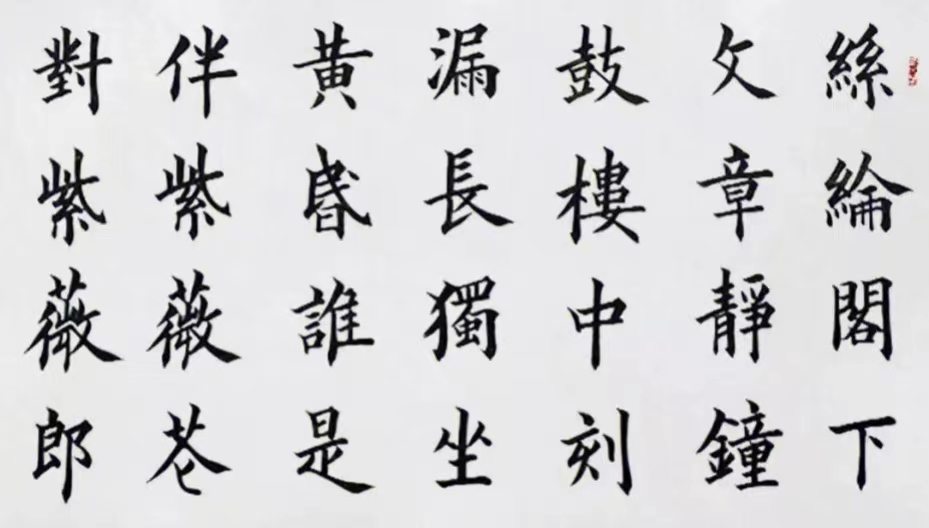 絲綸閣下
文章靜鐘
鼓樓中刻
漏長獨坐
黄昬誰是
伴紫薇花
對紫薇郎